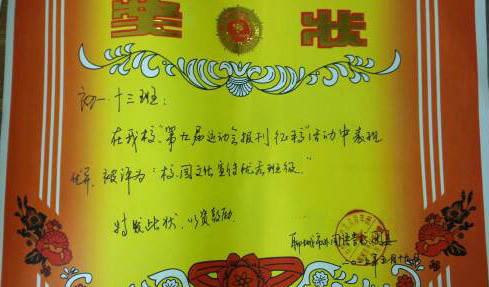 奖状
初一.十三班：
在我校“第九届运动会报刊征稿”活动中表现
优异，被评为“校园文化宣传优秀班级”
特发此状，以资鼓励
聊城市外国语学校